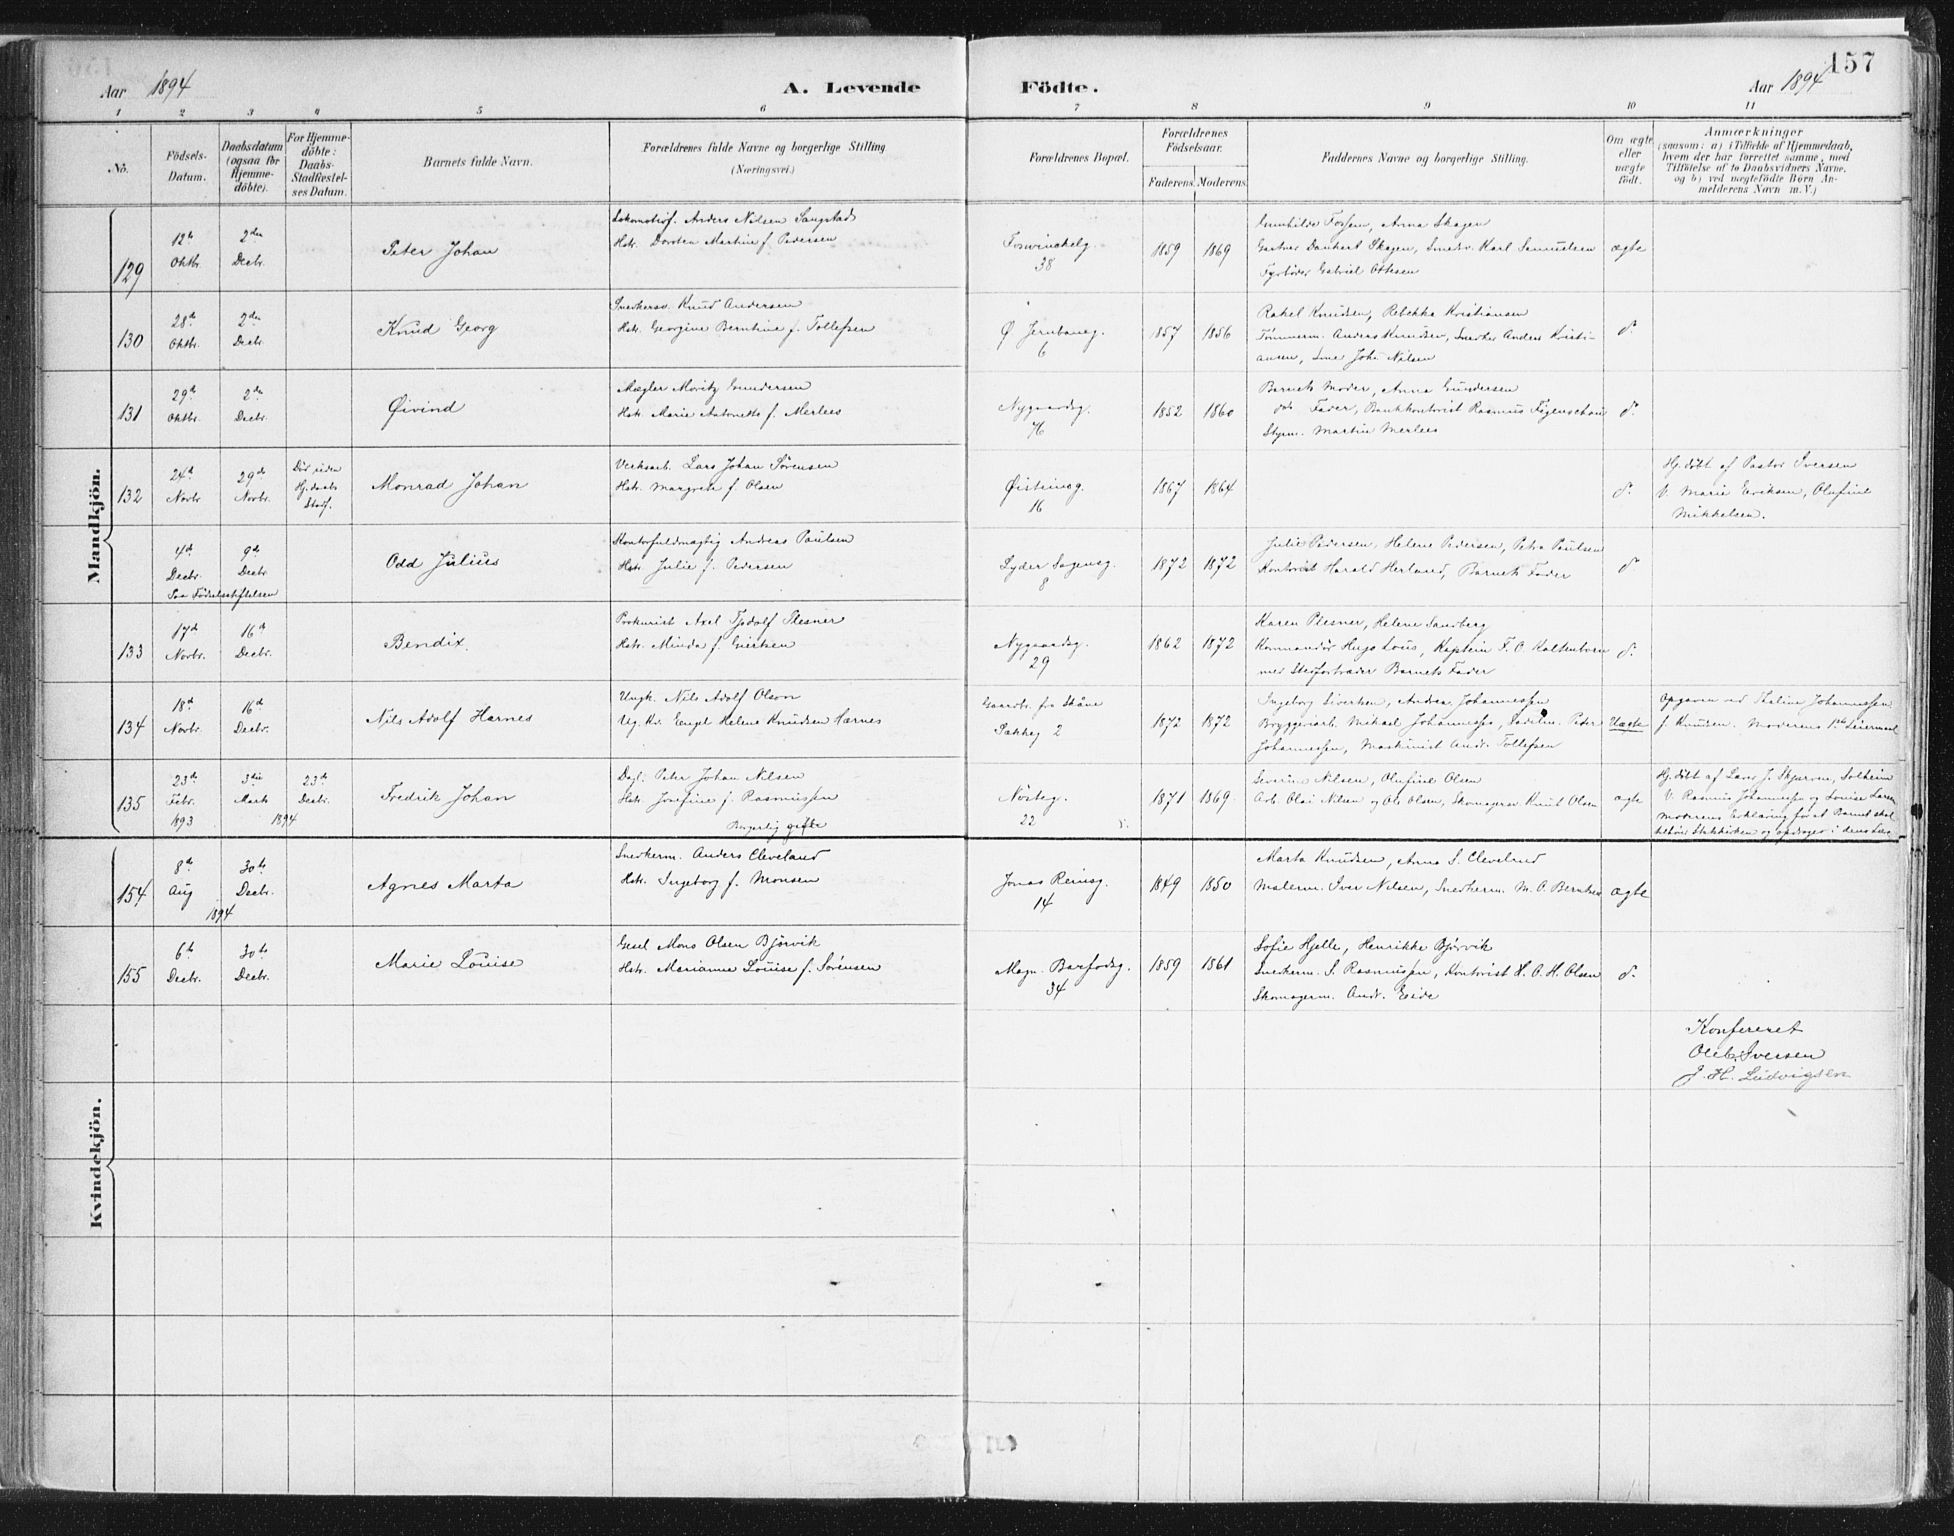 157
Aar 1894
A. Levende Födte.
Aar 1894
1 2 3 4 5 6 7 8 9 10 11
No.
Födsels-
Datum.
Daabsdatum
(ogsaa for
Hjemme-
döbte).
For Hjemme-
döbte:
Daabs-
Stadfæstel-
ses Datum.
Barnets fulde Navn.
Forældrenes fulde Navne og borgerlige Stilling
(Næringsvei.)
Forældrenes Bopæl.
Forældrenes
Födselsaar.
Faderens. Moderens.
Faddernes Navne og borgerlige Stilling.
Om ægte
eller
uægte
födt.
Anmærkninger
(saasom: a) i Tilfælde af Hjemmedaab,
hvem der har forrettet samme, med
Tilföielse af to Daabsvidners Navne,
og b) ved uægtefödte Börn An-
melderens Navn m. V.)
Mandkjön.
129
12te
Oktbr.
2den
Decbr.
Peter Johan
Anders Nilsen Sangstad
Hstr. Dorotea Martine f. Pedersen
38
1859 1869
Gunhilde Fossen, Anna Skagen
Gartner Dankert Skagen, Smedsv. Karl Samuelsen
Fyrböder Gabriel Ottesen
ægte
130
28de
Oktbr.
2den
Decbr.
Knud Georg
Snedkersv. Knud Andersen
Hstr. Georgine Berntine f. Tollefsen
Ø Jernbaneg.
6
1857 1856
Rakel Knudsen, Rebekka Kristiansen
Tömmerm. Anders Knudsen, Snedker Anders Kristi-
ansen, Joh. Nilsen
do.
131
29de
Oktbr.
2den
Decbr.
Øivind
Mægler Moritz Gundersen
Hstr. Marie Antonette f. Merlees
Nygaardsg.
76
1852 1860
Barnets Moder, Anna Gundersen
Fader, Bankkontorist Rasmus Fågenschou
Styrm. Martin Merlees
do.
132
24de
Novbr.
29de
Novbr.
Död uden
Hj. daabs
Stadf.
Monrad Johan
Verksarb. Lars Johan Sörensen
Hstr. Margrete f. Olsen
Øistreog.
16
1867 1864
do.
Hj. döbt af Pastor Iversen
V. Marie Eriksen, Olufine
Mikkelsen.
4de
Decbr.
9de
Decbr.
Paa Födselsstiftelsen
Odd Julius
Kontorfuldmægtig Andreas Paulsen
Hstr. Julie f. Pedersen
Lyder Sagensg.
8
1872 1872
Julie Pedersen, Helene Pedersen, Petra Paulsen
Kontorist Harald Herland, Barnets Fader
do.
133
17de
Novbr.
16de
Decbr.
Bendix.
Prokurist Axel Plesner
Hstr. Minda f.
Nygaardsg.
29
1862 1872
Karen Plesner, Helene Sandberg
Kommandör Hugo Lous, Kaptein F. C. Kaltenborn
med Stedfortræder Barnets Fader
do.
134
18de
Novbr.
16de
Decbr.
Nils Adolf Harnes
Ungk. Nils Adolf Olson
Ug. Kv. Engel Helene Knudsen Harnes
Gaardbr. fra Skåne
Sækkeg 2
1872 1872
Ingeborg Sivertsen, Andrea Johannessen
Bryggeriarb. Mikael Johannessen, Sadelm. Peder
Johannessen, Maskinist Andr. Tollefsen
Uægte
Opgaven ved Thaline Johannessen
f. Knudsen. Moderens 1ste Leiermaal
135
23de
Febr.
1893
3die
Marts
23de
Decbr.
1894
Fredrik Johan
Dagl. Peter Johan Nilsen
Hstr. Josefine f. Rasmussen
Borgerlig gifte
Nösteg.
22
1871 1869
Severine Nilsen, Olufine Olsen
Arb. Olai Nilsen og Ole Olsen, Skomagersv Knut Olsen
ægte
Hj. döbt af Lars J. Skjerven, Solheim
V. Rasmus Johannessen og Louise Larsen
Moderens Erklæring for at Barnet skal
tilhöre Statskirken og opdrages i dens Lære
Kvindekjön.
154
8de
Aug
30te
Decbr.
1894
Agnes Marta
Snedkerm. Anders Cleveland
Hstr. Ingeborg f. Monsen
Jonas Reinsg.
14
1849 1850
Marta Knudsen, Anna S. Cleveland
Malerm. Iver Nilsen, Snedkerm. M. A. Berntsen
ægte
155
6te
Decbr.
30te
Decbr.
Marie Louise
Gesel Mons Olsen Björvik
Hstr. Marianne Louise f. Sörensen
Magn. Barfodsg.
34
1859 1861
Sofie Hjelle, Henrikke Björvik
Snedkerm. S. Rasmussen, Kontorist H. O. H. Olsen
Skomagerm. Andr. Eide
do.
Konfereret
Ole Iversen
J. H. Ludvigsen